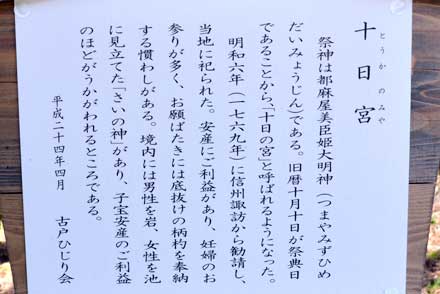 十日宮
とうか のみや
祭神は都麻屋美臣姫大明神(つまやみずひめ
だいみょうじん)である。旧暦十月十日が祭典日
であることから、「十日の宮」と呼ばれるようになった。
明和六年(一七六九年)に信州諏訪から勧請し、
当地に祀られた。安産にご利益があり、妊婦のお
参りが多く、お願ばたきには底抜けの柄杓を奉納
する慣わしがある。境内には男性を岩、女性を池
に見立てた「さいの神」があり、子宝安産のご利益
のほどがうかがわれるところである。
平成二十四年四月
古戸ひじり会